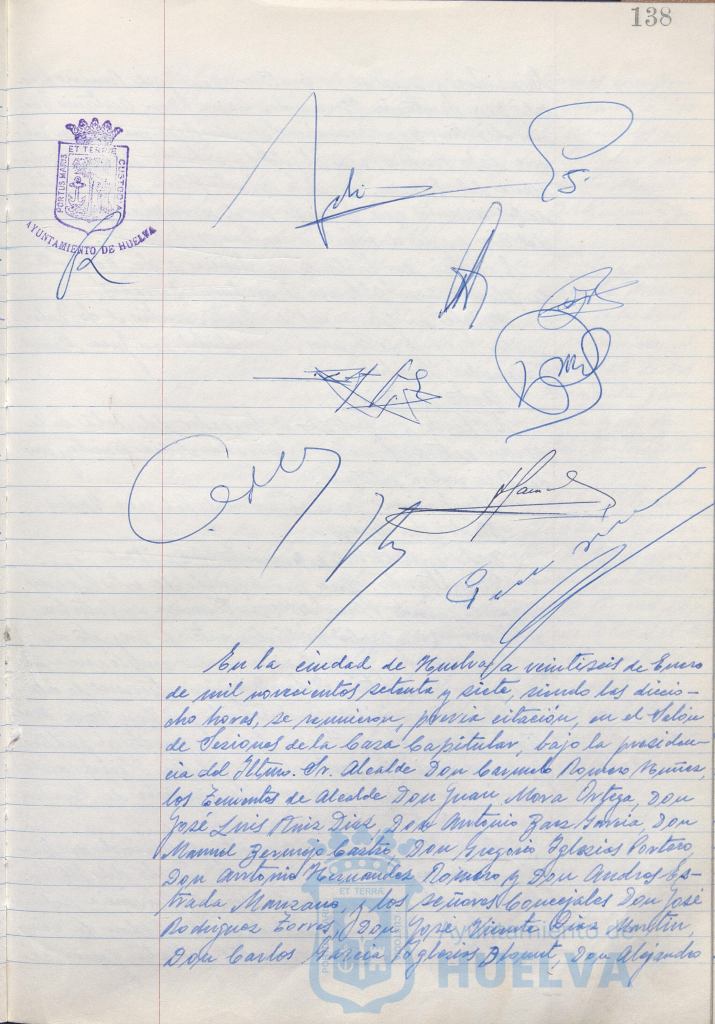 138
PORTUS MARIS ET TERRÆ CUSTODIA
AYUNTAMIENTO DE HUELVA
En la ciudad de Huelva, a veintiseis de Enero
de mil novecientos setenta y siete, siendo las diecio-
cho horas, se reunieron, previa citación, en el Salón
de Sesiones de la Casa Capitular, bajo la presiden-
cia del Iltmo. Sr. Alcalde Don Carmelo Romero Nuñez,
los Tenientes de Alcalde Don Juan Mora Ortega, Don
José Luis Ruiz Diaz, Don Antonio García, Don
Manuel Bermejo Castro, Don Gregorio Iglesias Portero,
Don Antonio Hernandez Romero y Don Andres Es-
trada Manzano, y los señores Concejales Don José
Rodriguez Torres, Don José Vicente Diaz Martin,
Don Carlos Garcia Iglesias, Don Alejandro
ET TERRÆ
Ayuntamiento
HUELVA